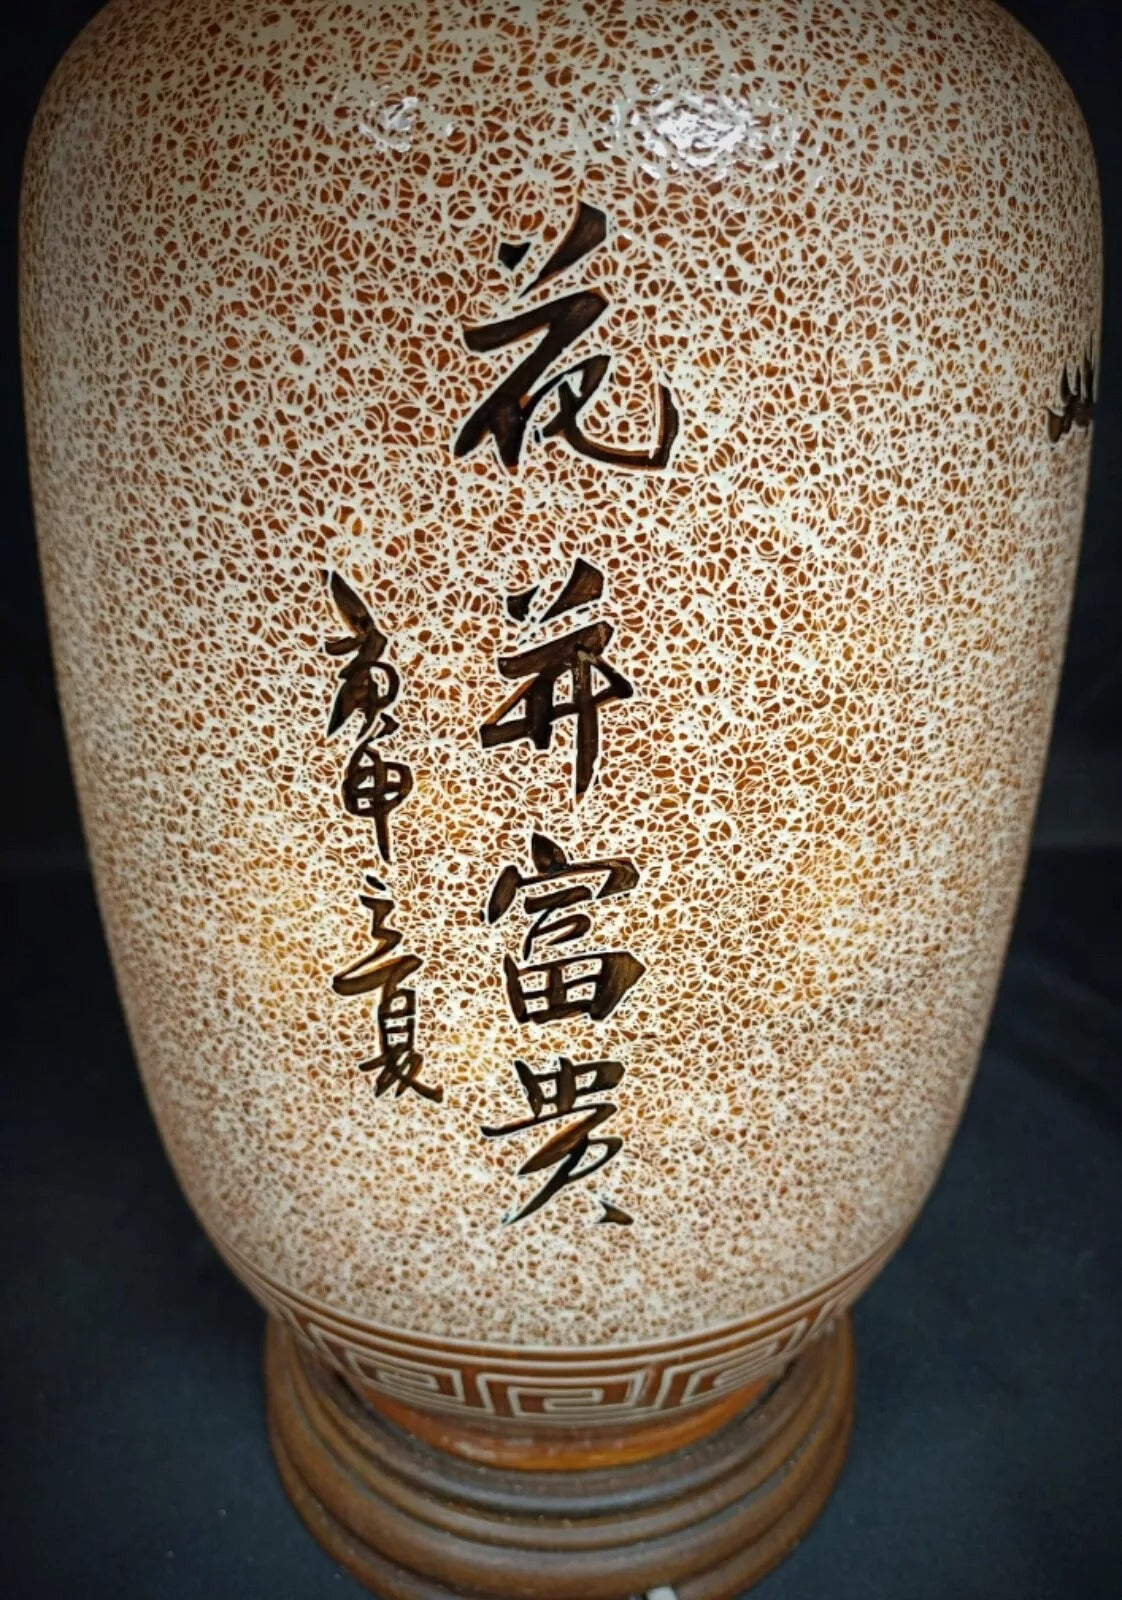 花开富贵
庚申之夏